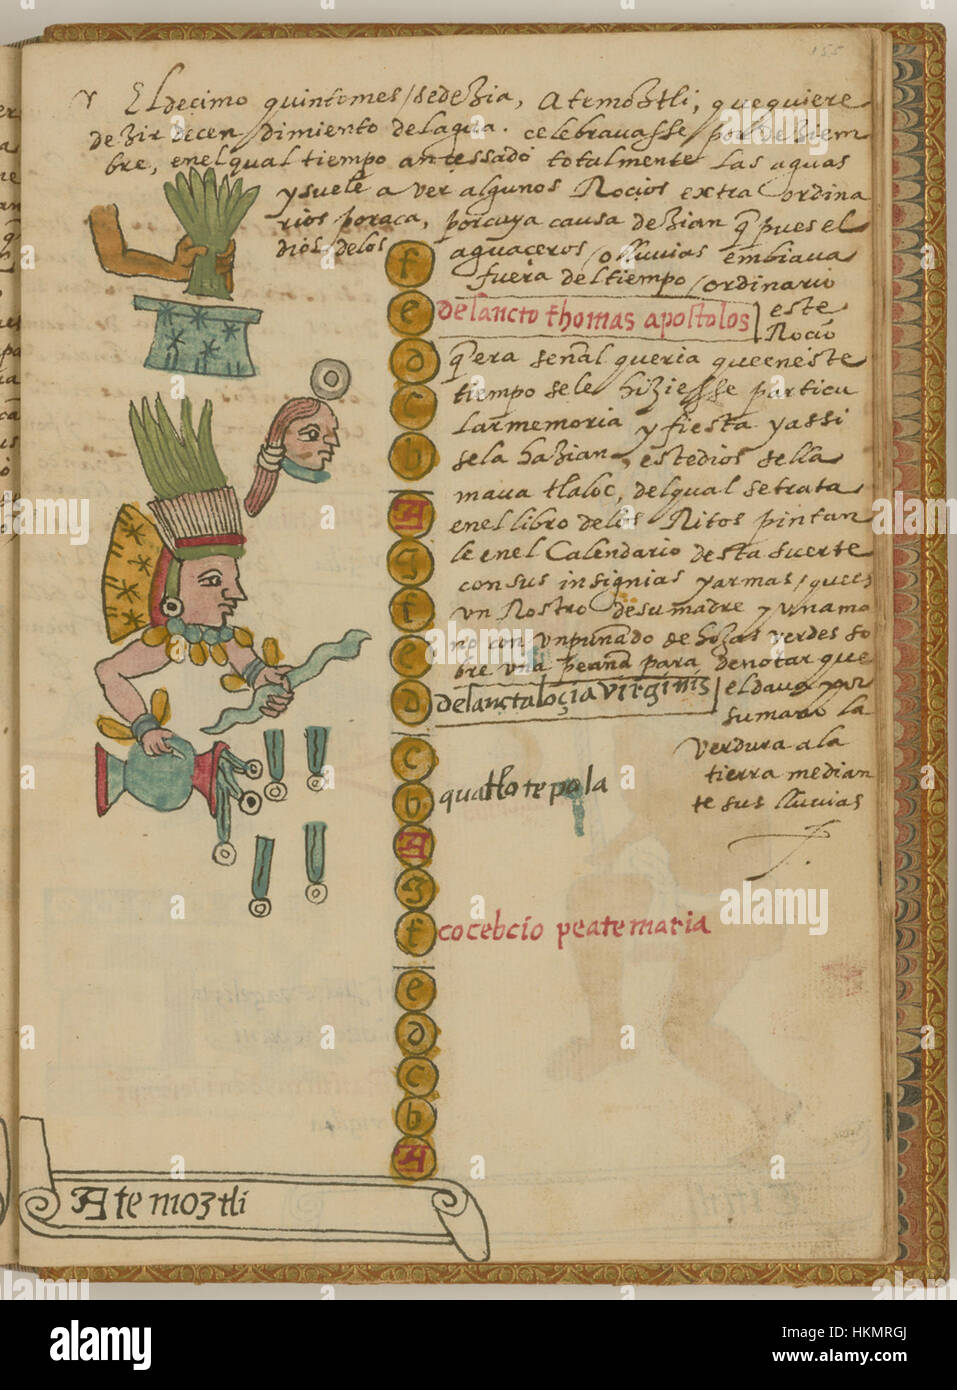 155
Y El decimo quinto mes / se dezia, Atemoztli, que quiere
dezir decendimiento del agua. celebravasse por deziem
bre, en el qual tiempo an cessado totalmente las aguas
y suele a ver algunos Rocios extra ordina
rios por aca, por cuya causa dezian q̃ pues el
dios de los aguaceros / o lluvias embiava
fuera del tiempo / ordinario
este
Rocio
q̃ era señal queria que en este
tiempo se le hiziesse particu
lar memoria y fiesta y assi
se la hazian, este dios se lla
mava tlaloc, del qual se trata
en el libro de los Ritos pintan
le en el Calendario desta suerte
con sus insignias y armas / que es
un Rostro de su madre y una ma
no con un puñado de hozas verdes so
bre una peana para denotar que
el dava por
su mano la
verdura a la
tierra median
te sus lluvias
f
e de sancto thomas apostolos
d
c
b
A
g
f
e
d de sancta locia virginis
c
b quatlotepola
A
g
f cocebcio peatemaria
e
d
c
b
A
Atemoztli
alamy
Image ID: HKMRGJ
www.alamy.com